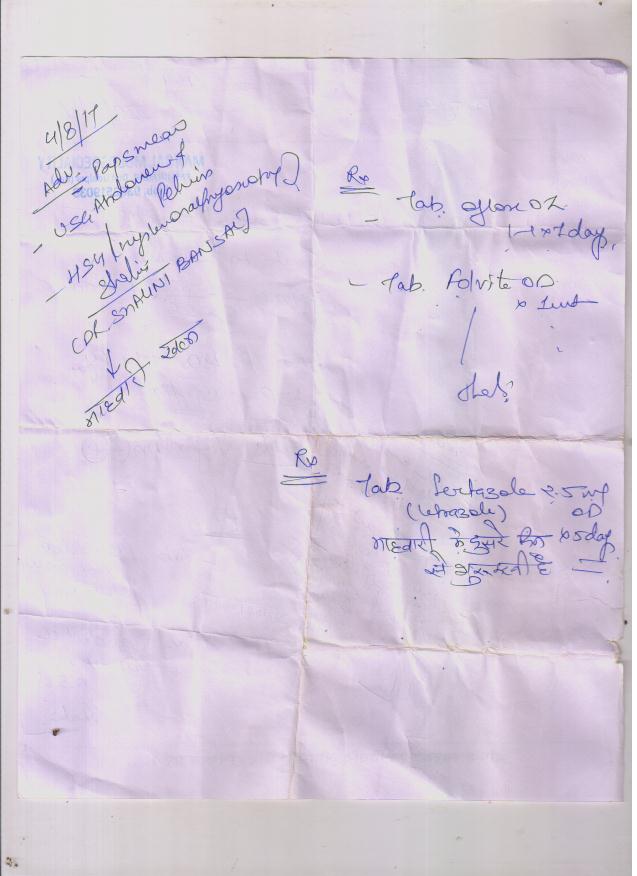 4/8/17
Adv:- Papsmear
- USG Abdomen &
Pelvis
- HSG (
Shalini
(DR. SHALINI BANSAL)
माहवारी खत्म
Rx
- Tab. Oflox OZ
1-1 x 7 day.
- Tab. Folvite OD
x 1
Rx
Tab. Fertazole 2.5 mg
(Letrazole) OD
माहवारी के दुसरे दिन x 5 day
से शुरू करनी है